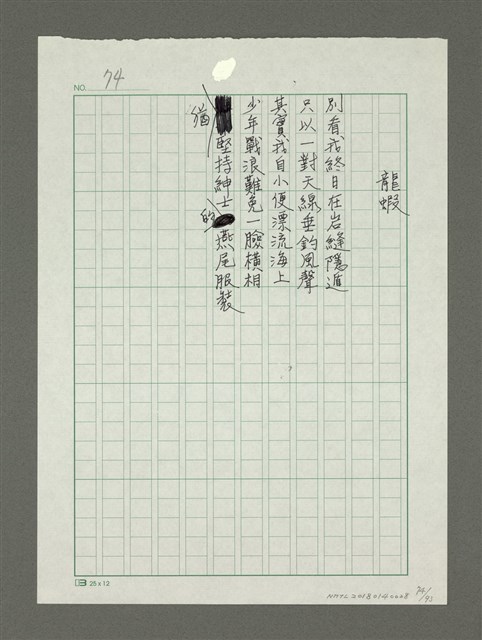 NO. 74
龍蝦
別看我終日在岩縫隱遁
只以一對天線垂釣風聲
其實我自小便漂流海上
少年戰浪難免一臉橫相
猶堅持紳士的燕尾服裝
25×12
NMTL20180140008
74/93